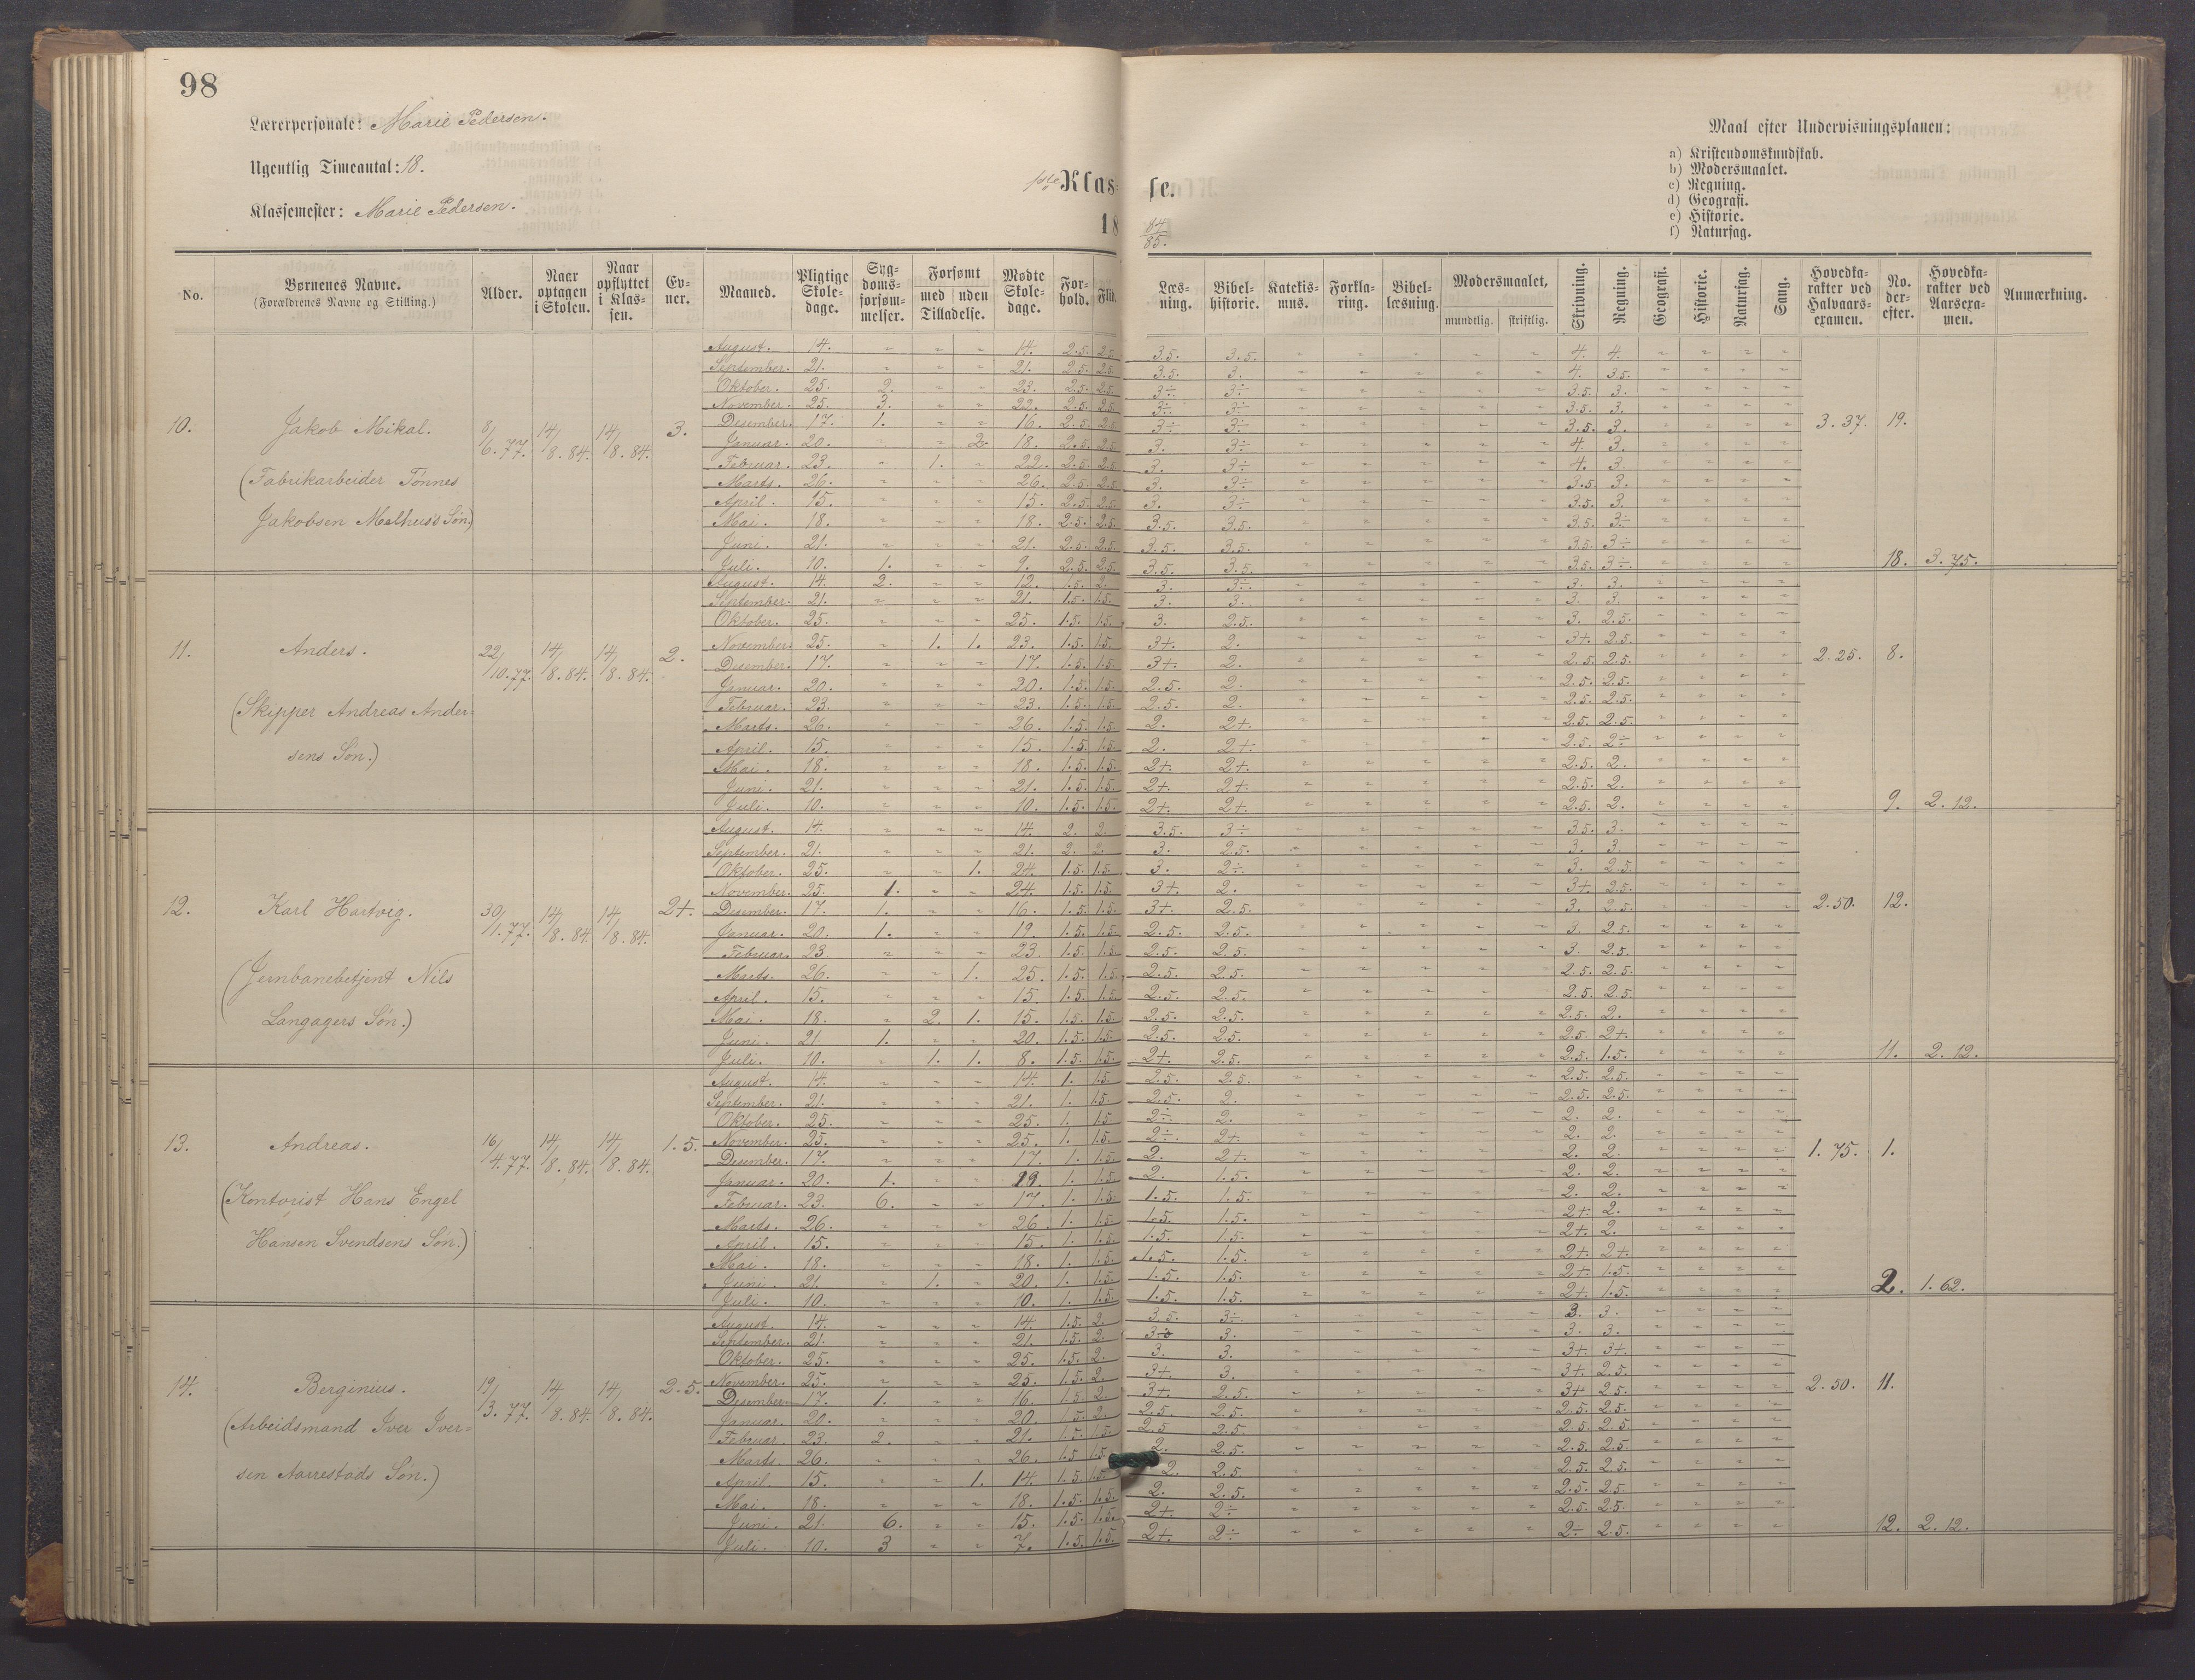 98
Lærerpersonale: Marie Pedersen.
Ugentlig Timeantal: 18.
Klassemester: Marie Pedersen.
1ste Klasse.
18 84/85.
Maal efter Undervisningsplanen:
a) Kristendomskundskab.
b) Modersmaalet.
c) Regning.
d) Geografi.
e) Historie.
f) Naturfag.
No. | Børnenes Navne. (Forældrenes Navne og Stilling.) | Alder. | Naar optagen i Skolen. | Naar opflyttet i Klassen. | Evner. | Maaned. | Pligtige Skoledage. | Sygdomsforsømmelser. | Forsømt med Tilladelse. | uden Tilladelse. | Mødte Skoledage. | Forhold. | Flid. | Læsning. | Bibelhistorie. | Katekismus. | Forklaring. | Bibellæsning. | Modersmaalet, mundtlig. | skriftlig. | Skrivning. | Regning. | Geografi. | Historie. | Naturfag. | Sang. | Hovedkarakter ved Halvaarsexamen. | No. derefter. | Hovedkarakter ved Aarsexamen. | Anmærkning.
10. Jakob Mikal. 8/6.77. 14/8.84. 14/8.84. 3. 3.37. 19.
(Fabrikarbeider Tønnes
Jakobsen Malhus's Søn.)
August. 14. " " " 14. 2.5. 2.5. 3.5. 3.5. " " " " " 4. 4. " " " "
September. 21. " " " 21. 2.5. 2.5. 3.5. 3. " " " " " 4. 3.5. " " " "
Oktober. 25. 2. " " 23. 2.5. 2.5. 3÷ 3÷ " " " " " 3.5. 3. " " " "
November. 25. 3. " " 22. 2.5. 2.5. 3÷ 3÷ " " " " " 3.5. 3. " " " "
Desember. 17. 1. " " 16. 2.5. 2.5. 3÷ 3÷ " " " " " 3.5. 3. " " " "
Januar. 20. " " 2. 18. 2.5. 2.5. 3. 3÷ " " " " " 4. 3. " " " "
Februar. 23. " 1. " 22. 2.5. 2.5. 3. 3÷ " " " " " 4. 3. " " " "
Marts. 26. " " " 26. 2.5. 2.5. 3. 3÷ " " " " " 3.5. 3. " " " "
April. 15. " " " 15. 2.5. 2.5. 3. 3÷ " " " " " 3.5. 3. " " " "
Mai. 18. " " " 18. 2.5. 2.5. 3.5. 3.5. " " " " " 3.5. 3÷ " " " "
Juni. 21. " " " 21. 2.5. 2.5. 3.5. 3.5. " " " " " 3.5. 3÷ " " " "
Juli. 10. 1. " " 9. 2.5. 2.5. 3.5. 3.5. " " " " " 3.5. 3÷ " " " " 18. 3.75.
11. Anders. 22/10.77. 14/8.84. 14/8.84. 2. 2.25. 8.
(Skipper Andreas Ander-
sens Søn.)
August. 14. 2. " " 12. 1.5. 2. 3. 3÷ " " " " " 3. 3. " " " "
September. 21. " " " 21. 1.5. 1.5. 3. 3. " " " " " 3. 3. " " " "
Oktober. 25. " " " 25. 1.5. 1.5. 3. 2.5. " " " " " 3. 2.5. " " " "
November. 25. " 1. 1. 23. 1.5. 1.5. 3+. 2. " " " " " 3+. 2.5. " " " "
Desember. 17. " " " 17. 1.5. 1.5. 3+. 2. " " " " " 2.5. 2.5. " " " "
Januar. 20. " " " 20. 1.5. 1.5. 2.5. 2. " " " " " 2.5. 2.5. " " " "
Februar. 23. " " " 23. 1.5. 1.5. 2.5. 2. " " " " " 2.5. 2.5. " " " "
Marts. 26. " " " 26. 1.5. 1.5. 2. 2+. " " " " " 2.5. 2.5. " " " "
April. 15. " " " 15. 1.5. 1.5. 2. 2+. " " " " " 2.5. 2÷ " " " "
Mai. 18. " " " 18. 1.5. 1.5. 2+. 2+. " " " " " 2.5. 2. " " " "
Juni. 21. " " " 21. 1.5. 1.5. 2+. 2+. " " " " " 2.5. 2. " " " "
Juli. 10. " " " 10. 1.5. 1.5. 2+. 2+. " " " " " 2.5. 2. " " " " 9. 2.12.
12. Karl Hartvig. 30/1.77. 14/8.84. 14/8.84. 2+. 2.50. 12.
(Jernbanebetjent Nils
Langagers Søn.)
August. 14. " " " 14. 2. 2. 3.5. 3÷ " " " " " 3.5. 3. " " " "
September. 21. " " " 21. 2. 2. 3. 2.5. " " " " " 3. 3. " " " "
Oktober. 25. " " 1. 24. 1.5. 1.5. 3. 2÷ " " " " " 3. 2.5. " " " "
November. 25. 1. " " 24. 1.5. 1.5. 3+. 2. " " " " " 3+. 2.5. " " " "
Desember. 17. 1. " " 16. 1.5. 1.5. 3+. 2.5. " " " " " 3. 2.5. " " " "
Januar. 20. 1. " " 19. 1.5. 1.5. 2.5. 2.5. " " " " " 3. 2.5. " " " "
Februar. 23 " " " 23. 1.5. 1.5. 2.5. 2.5. " " " " " 3. 2.5. " " " "
Marts. 26. " " 1. 25. 1.5. 1.5. 2.5. 2.5. " " " " " 2.5. 2.5. " " " "
April. 15. " " " 15. 1.5. 1.5. 2.5. 2.5. " " " " " 2.5. 2.5. " " " "
Mai. 18. " 2. 1. 15. 1.5. 1.5. 2.5. 2.5. " " " " " 2.5. 2. " " " "
Juni. 21. 1. " " 20. 1.5. 1.5. 2.5. 2.5. " " " " " 2.5. 2+. " " " "
Juli. 10. " 1. 1. 8. 1.5. 1.5. 2+. 2.5. " " " " " 2.5. 1.5. " " " " 11. 2.12.
13. Andreas. 16/4.77. 14/8.84. 14/8.84. 1.5. 1.75. 1.
(Kontorist Hans Engel
Hansen Svendsens Søn.)
August. 14. " " " 14. 1. 1.5. 2.5. 2.5. " " " " " 2.5. 2.5. " " " "
September. 21. " " " 21. 1. 1.5. 2.5. 2. " " " " " 2.5. 2.5. " " " "
Oktober. 25. " " " 25. 1. 1.5. 2÷ 2. " " " " " 2. 2. " " " "
November. 25. " " " 25. 1. 1.5. 2÷ 2+. " " " " " 2. 2. " " " "
Desember. 17. " " " 17. 1. 1.5. 2. 2+. " " " " " 2. 2. " " " "
Januar. 20. 1. " " 19. 1. 1.5. 2. 1.5. " " " " " 2. 2. " " " "
Februar. 23. 6. " " 17. 1. 1.5. 1.5. 1.5. " " " " " 2. 2. " " " "
Marts. 26. " " " 26. 1. 1.5. 1.5. 1.5. " " " " " 2+. 2. " " " "
April. 15. " " " 15. 1. 1.5. 1.5. 1.5. " " " " " 2+. 2. " " " "
Mai. 18. " " " 18. 1. 1.5. 1.5. 1.5. " " " " " 2+. 2+. " " " "
Juni. 21. " 1. " 20. 1. 1.5. 1.5. 1.5. " " " " " 2+. 1.5. " " " "
Juli. 10. " " " 10. 1. 1.5. 1.5. 1.5. " " " " " 2+. 1.5. " " " " 2. 1.62.
14. Berginius. 19/3.77. 14/8.84. 14/8.84. 2.5. 2.50. 11.
(Arbeidsmand Iver Iver-
sen Aarrestads Søn.)
August. 14. " " " 14. 1.5. 2. 3.5. 3÷ " " " " " 3. 3. " " " "
September. 21. " " " 21. 1.5. 2. 3÷ 3. " " " " " 3. 3. " " " "
Oktober. 25. " " " 25. 1.5. 2. 3. 3. " " " " " 3+. 3+. " " " "
November. 25. " " " 25. 1.5. 2. 3+. 3. " " " " " 3+. 2.5. " " " "
Desember. 17. 1. " " 16. 1.5. 2. 3+. 2.5. " " " " " 3+. 2.5. " " " "
Januar. 20. " " " 20. 1.5. 2. 2.5. 2.5. " " " " " 2.5. 2.5. " " " "
Februar. 23. 2. " " 21. 1.5. 1.5. 2.5 2.5. " " " " " 2.5. 2.5. " " " "
Marts. 26. " " " 26. 1.5 1.5. 2. 2.5. " " " " " 2.5. 2.5. " " " "
April. 15. " " 1. 14. 1.5. 1.5. 2. 2.5. " " " " " 2.5. 2.5. " " " "
Mai. 18. " " " 18. 1.5. 1.5. 2. 2.5. " " " " " 2.5. 2.5. " " " "
Juni. 21. 6. " " 15. 1.5. 1.5. 2+. 2÷ " " " " " 2.5. 2.5. " " " "
Juli. 10. 3 " " 7. 1.5. 1.5. 2+. 2÷ " " " " " 2÷ 2.5. " " " " 12. 2.12.